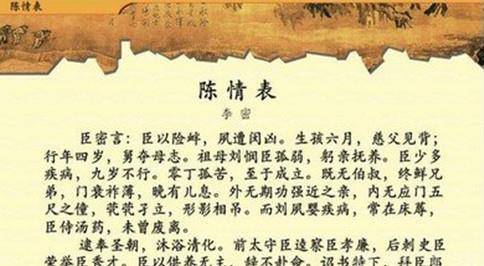 陈情表
陈情表
李密
臣密言：臣以险衅，夙遭闵凶。生孩六月，慈父见背；
行年四岁，舅夺母志。祖母刘悯臣孤弱，躬亲抚养。臣少多
疾病，九岁不行。零丁孤苦，至于成立。既无伯叔，终鲜兄
弟，门衰祚薄，晚有儿息。外无期功强近之亲，内无应门五
尺之僮，茕茕孑立，形影相吊。而刘夙婴疾病，常在床蓐，
臣侍汤药，未曾废离。
逮奉圣朝，沐浴清化。前太守臣逵察臣孝廉，后刺史臣
荣举臣秀才。臣以供养无主，辞不赴命。诏书特下，拜臣郎